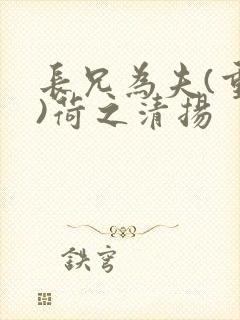 長兄為夫(重
)荷之清揚
鉄穹